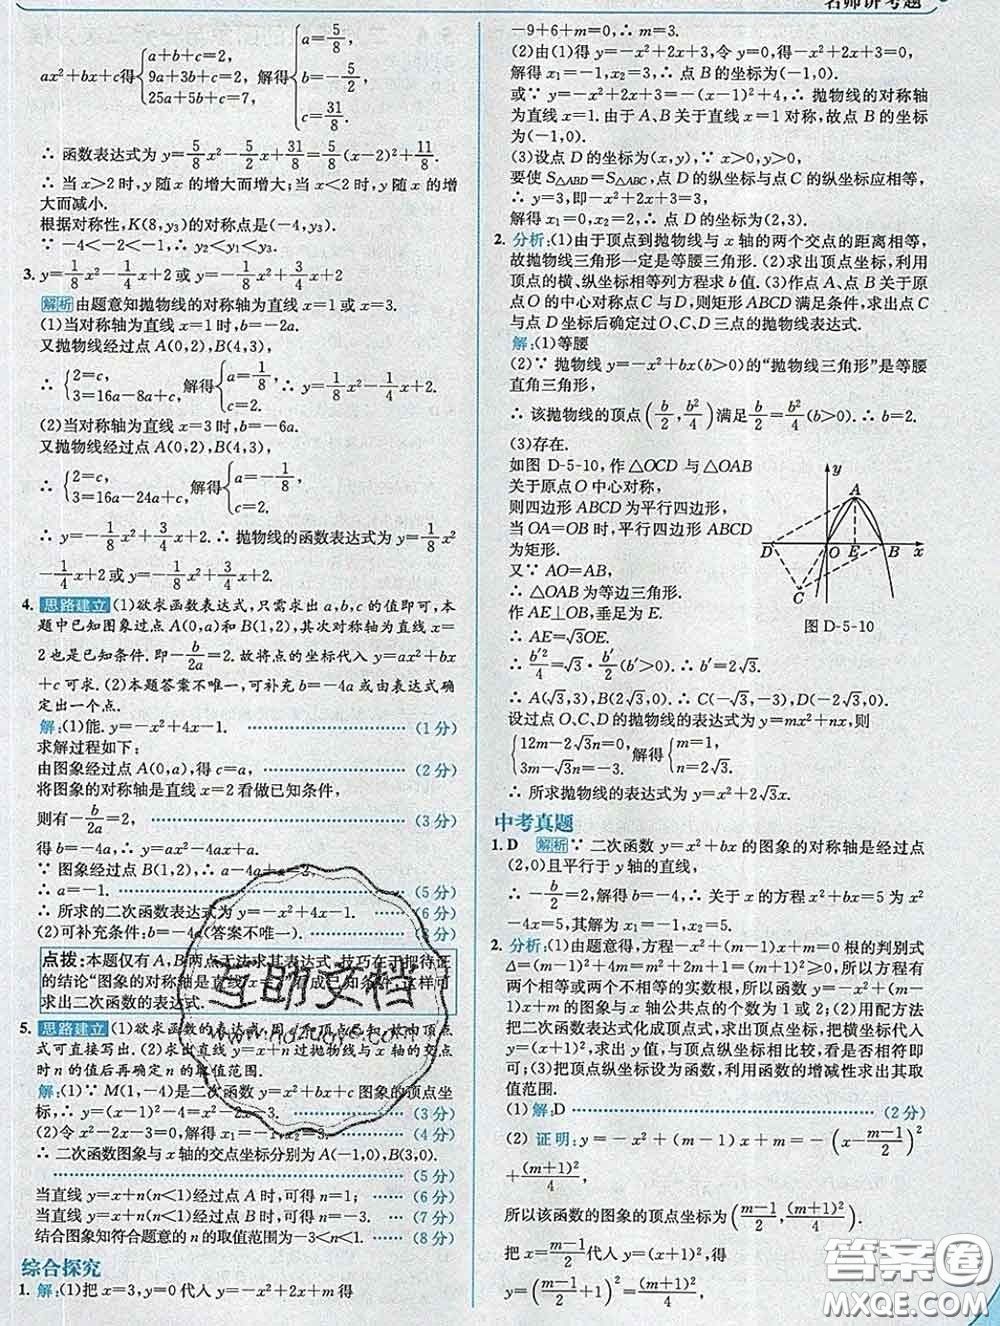 名师讲考题
ax²+bx+c得{4a+2b+c=2, 9a+3b+c=2, 25a+5b+c=7. 解得{a=5/8, b=-5/2, c=31/8.
∴ 函数表达式为 y=5/8x²-5/2x+31/8=5/8(x-2)²+11/8
∴ 当 x>2 时,y 随 x 的增大而增大;当 x<2 时,y 随 x 的增
大而减小.
根据对称性,K(8,y₃)的对称点是(-4,y₃).
∵ -4<-2<-1,∴ y₂<y₁<y₃.
3. y=1/8x²-1/4x+2 或 y=-1/8x²+3/4x+2
解析 由题意知抛物线的对称轴为直线 x=1 或 x=3.
(1)当对称轴为直线 x=1 时,b=-2a.
又抛物线经过点 A(0,2),B(4,3),
∴ {2=c, 3=16a-8a+c, 解得{a=1/8, c=2. ∴ y=1/8x²-1/4x+2.
(2)当对称轴为直线 x=3 时,b=-6a.
又抛物线经过点 A(0,2),B(4,3),
∴ {2=c, 3=16a-24a+c, 解得{a=-1/8, c=2.
∴ y=-1/8x²+3/4x+2. ∴ 抛物线的函数表达式为 y=1/8x²-
1/4x+2 或 y=-1/8x²+3/4x+2.
4. 思路建立 (1)欲求函数表达式,只需求出 a,b,c 的值即可,本
题中已知图象过点 A(0,a)和 B(1,2),其次对称轴为直线 x=
2 也是已知条件.即-b/2a=2.故将点的坐标代入 y=ax²+bx
+c 可求.(2)本题答案不唯一,可补充 b=-4a 或由表达式确
定出一个点.
解:(1)能. y=-x²+4x-1. (1分)
求解过程如下:
由图象经过点 A(0,a),得 c=a, (2分)
将图象的对称轴是直线 x=2 看做已知条件,
则有-b/2a=2, (3分)
得 b=-4a,∴ y=ax²-4ax+a.
∵ 图象经过点 B(1,2),∴ a-4a+a=2.
∴ a=-1. (5分)
∴ 所求的二次函数表达式为 y=-x²+4x-1. (6分)
(2)可补充条件:b=-4a(答案不唯一). (8分)
点拨:本题仅有 A,B 两点无法求其表达式,技巧在于把待证
的结论“图象的对称轴是直线 x=2”当成已知条件,这样可
求出二次函数的表达式.
5. 思路建立 (1)欲求函数的表达式,因 顶点已知,故由顶点
式可直接写出.(2)求出直线 y=x+n 过抛物线与 x 轴的交点
时 n 的值后再确定 n 的取值范围.
解:(1)∵ M(1,-4)是二次函数 y=x²+bx+c 图象的顶点坐
标,∴ y=(x-1)²-4=x²-2x-3. (3分)
(2)令 x²-2x-3=0,解得 x₁=-1,x₂=3, (4分)
∴ 二次函数图象与 x 轴的交点坐标分别为 A(-1,0),B(3,0).
(5分)
当直线 y=x+n(n<1)经过点 A 时,可得 n=1; (6分)
当直线 y=x+n(n<1)经过点 B 时,可得 n=-3. (7分)
结合图象知符合题意的 n 的取值范围为-3<n<1. (8分)
综合探究
1. 解:(1)把 x=3,y=0 代入 y=-x²+2x+m 得
-9+6+m=0,解得 m=3.
(2)由(1)得 y=-x²+2x+3,令 y=0,得-x²+2x+3=0,
解得 x₁=-1,x₂=3,∴ 点 B 的坐标为(-1,0).
或∵ y=-x²+2x+3=-(x-1)²+4,∴ 抛物线的对称轴
为直线 x=1.由于 A、B 关于直线 x=1 对称,故点 B 的坐标为
(-1,0).
(3)设点 D 的坐标为(x,y),∵ x>0,y>0,
要使 S△ABD=S△ABC,点 D 的纵坐标与点 C 的纵坐标应相等,
∴ y=3,即-x²+2x+3=3,
解得 x₁=0,x₂=2,∴ 点 D 的坐标为(2,3).
2. 分析:(1)由于顶点到抛物线与 x 轴的两个交点的距离相等,
故抛物线三角形一定是等腰三角形.(2)求出顶点坐标,利用
顶点的横、纵坐标相等列方程求 b 值.(3)作点 A、B 关于原
点 O 的中心对称点 C、D,则矩形 ABCD 满足条件,求出点 C
与点 D 坐标后确定过 O、C、D 三点的抛物线表达式.
解:(1)等腰
(2)∵ 抛物线 y=-x²+bx(b>0)的“抛物线三角形”是等腰
直角三角形,
∴ 该抛物线的顶点(b/2,b²/4)满足b/2=b²/4(b>0).∴ b=2.
(3)存在.
如图 D-5-10,作△OCD 与△OAB
关于原点 O 中心对称,
则四边形 ABCD 为平行四边形,
当 OA=OB 时,平行四边形 ABCD
为矩形.
又∵ AO=AB,
∴ △OAB 为等边三角形.
作 AE⊥OB,垂足为 E.
∴ AE=√3OE.
∴ b′²/4=√3·b′/2(b′>0).∴ b′=2√3.
∴ A(√3,3),B(2√3,0).∴ C(-√3,-3),D(-2√3,0).
设过点 O、C、D 的抛物线的表达式为 y=mx²+nx,则
{12m-2√3n=0, 3m-√3n=-3. 解得{m=1, n=2√3.
∴ 所求抛物线的表达式为 y=x²+2√3x.
y
A
D
O
E
B
x
C
图 D-5-10
中考真题
1. D 解析 ∵ 二次函数 y=x²+bx 的图象的对称轴是经过点
(2,0)且平行于 y 轴的直线,
∴ -b/2=2,解得 b=-4,∴ 关于 x 的方程 x²+bx=5 为 x²
-4x=5,其解为 x₁=-1,x₂=5.
2. 分析:(1)由题意得,方程-x²+(m-1)x+m=0 根的判别式
Δ=(m-1)²+4m=(m+1)²⩾0,所以一元二次方程有
两个相等或两个不相等的实数根,所以函数 y=-x²+(m-
1)x+m 的图象与 x 轴公共点的个数为 1 或 2;(2)用配方法
把二次函数表达式化成顶点式,求出顶点坐标,把横坐标代入
y=(x+1)²,求出 y 值,与顶点纵坐标相比较,看是否相符即
可;(3)把顶点纵坐标设为函数,利用函数的增减性求出其取
值范围.
(1)解:D (2分)
(2) 证明:y=-x²+(m-1)x+m=-(x-(m-1)/2)²
+(m+1)²/4,
所以该函数的图象的顶点坐标为((m-1)/2,(m+1)²/4).
把 x=(m-1)/2 代入 y=(x+1)²,得
y=((m-1)/2+1)²=(m+1)²/4,
互助文档
答案圈
MXQE.COM